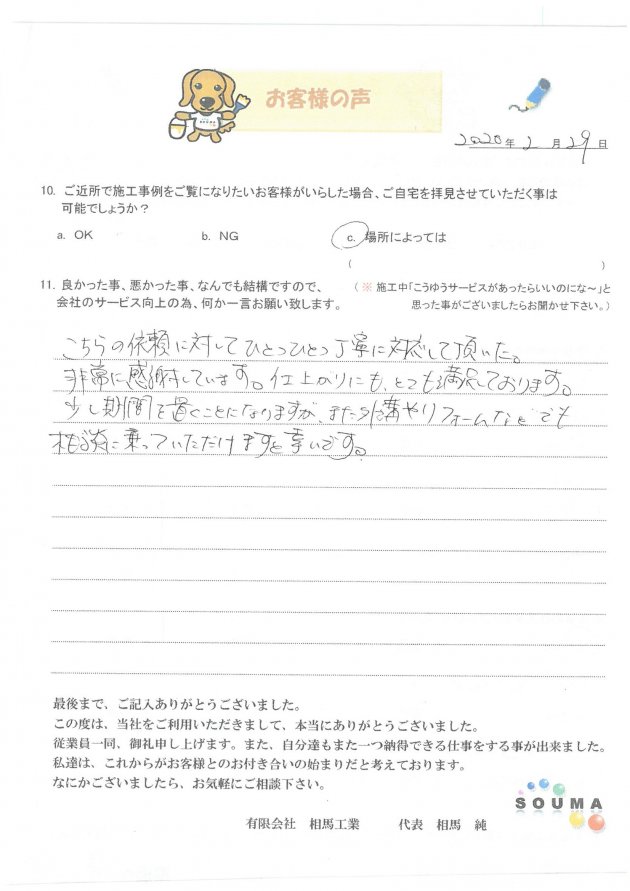 お客様の声
SOUMA
2020年2月29日
10. ご近所で施工事例をご覧になりたいお客様がいらした場合、ご自宅を拝見させていただく事は
可能でしょうか？
a. OK b. NG c. 場所によっては
( )
11. 良かった事、悪かった事、なんでも結構ですので、 （※ 施工中「こうゆうサービスがあったらいいのにな～」と
会社のサービス向上の為、何か一言お願い致します。 思った事がございましたらお聞かせ下さい。）
こちらの依頼に対してひとつひとつ丁寧に対応して頂いた。
非常に感謝しています。仕上がりにも、とても満足しております。
少し期間を置くことになりますが、また外構やリフォームなどでも
相談に乗っていただけますと幸いです。
最後まで、ご記入ありがとうございました。
この度は、当社をご利用いただきまして、本当にありがとうございました。
従業員一同、御礼申し上げます。また、自分達もまた一つ納得できる仕事をする事が出来ました。
私達は、これからがお客様とのお付き合いの始まりだと考えております。
なにかございましたら、お気軽にご相談下さい。
SOUMA
有限会社 相馬工業 代表 相馬 純